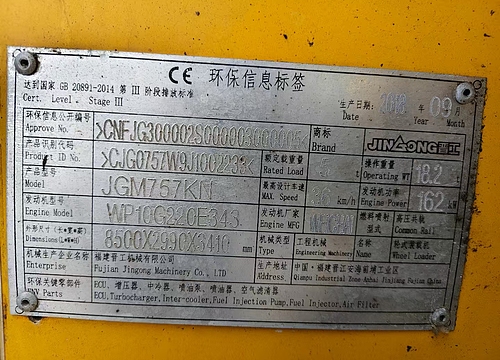 CE 环保信息标签
达到国家 GB 20891-2014 第 III 阶段排放标准
Cert. Level. Stage III
生产日期: 年 09 月
Date Year Month
环保信息公开编号
Approve No.
商标
Brand
JINGONG 晋工
产品识别代码
Product ID No.
额定载重量
Rated Load
t
操作重量
Operating WT
18.2
产品型号
Model
JGM757KN
最高设计车速
km/h
发动机功率
Engine Power
162
kW
发动机型号
Engine Model
WP10G220E343
发动机厂家
Engine MFG
燃料喷射型式
高压共轨
Common Rail
外形尺寸(长*宽*高)
Dimensions(L*W*H)
8500X2990X3410
mm
机械类型
Type
工程机械
Engineering Machinery
名称
Name
轮式装载机
Wheel Loader
机械生产企业名称
Enterprise
福建晋工机械有限公司
Fujian Jingong Machinery Co., LTD
生产地址
Address
中国·福建晋江安海前埔工业区
Qianpu Industrial Zone Anhai Jinjiang Fujian China.
环保关键零部件
ENV Parts
ECU、增压器、中冷器、喷油泵、喷油器、空气滤清器
ECU,Turbocharger,Inter-cooler,Fuel Injection Pump,Fuel Injector,Air Filter